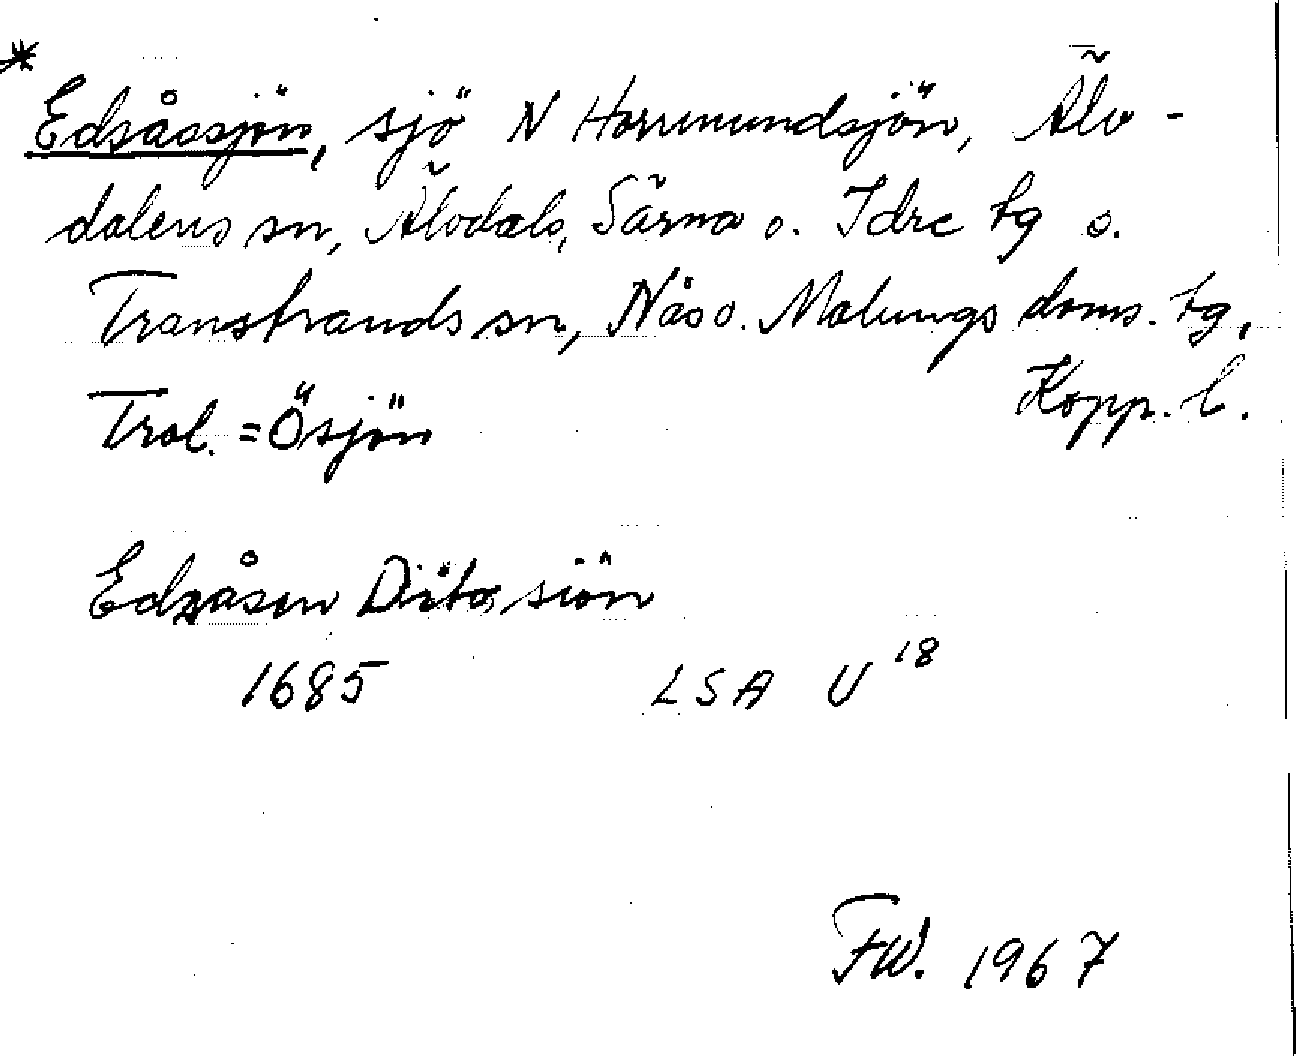 * Edsåssjön, sjö N Horrmundsjön, Älv-
dalens sn, Älvdals, Särna o. Idre tg o.
Transtrands sn, Nås o. Malungs doms. tg,
Kopp. l.
Trol. = Ösjön
Edzåsen Dito siön
1685 LSA U 18
FW. 1967